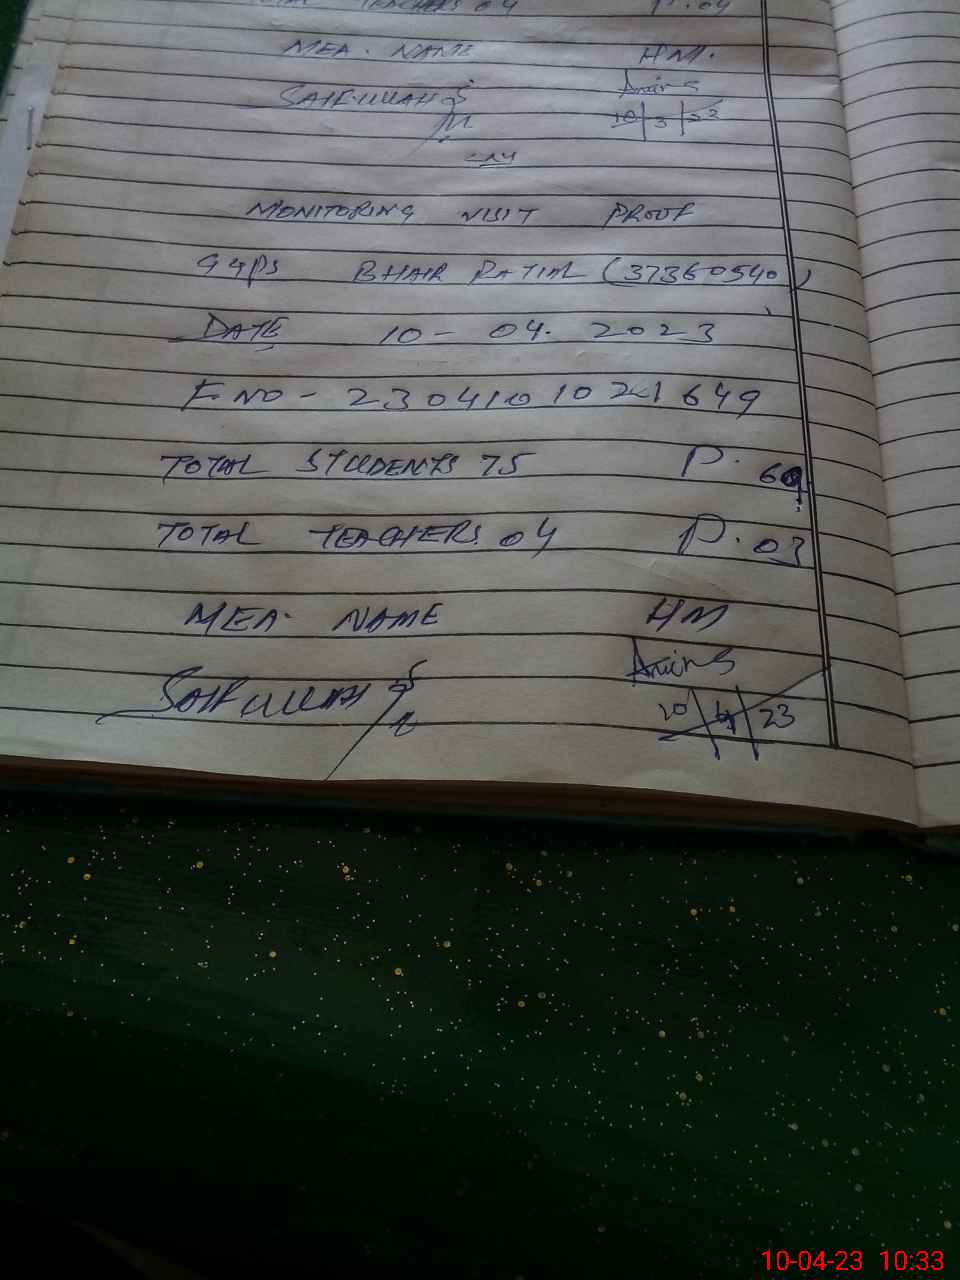 TOTAL TEACHERS 04 P. 04
MEA. NAME HM.
SAIF-ULLAH
10/3/23
MONITORING VISIT PROOF
GGPS BHAIR RATIAL (37360540)
DATE 10-04.2023
F.NO- 2304101021649
TOTAL STUDENTS 75 P. 69
TOTAL TEACHERS. 04 P. 03
MEA. NAME HM
SAIF ULLAH
10/4/23
10-04-23 10:33